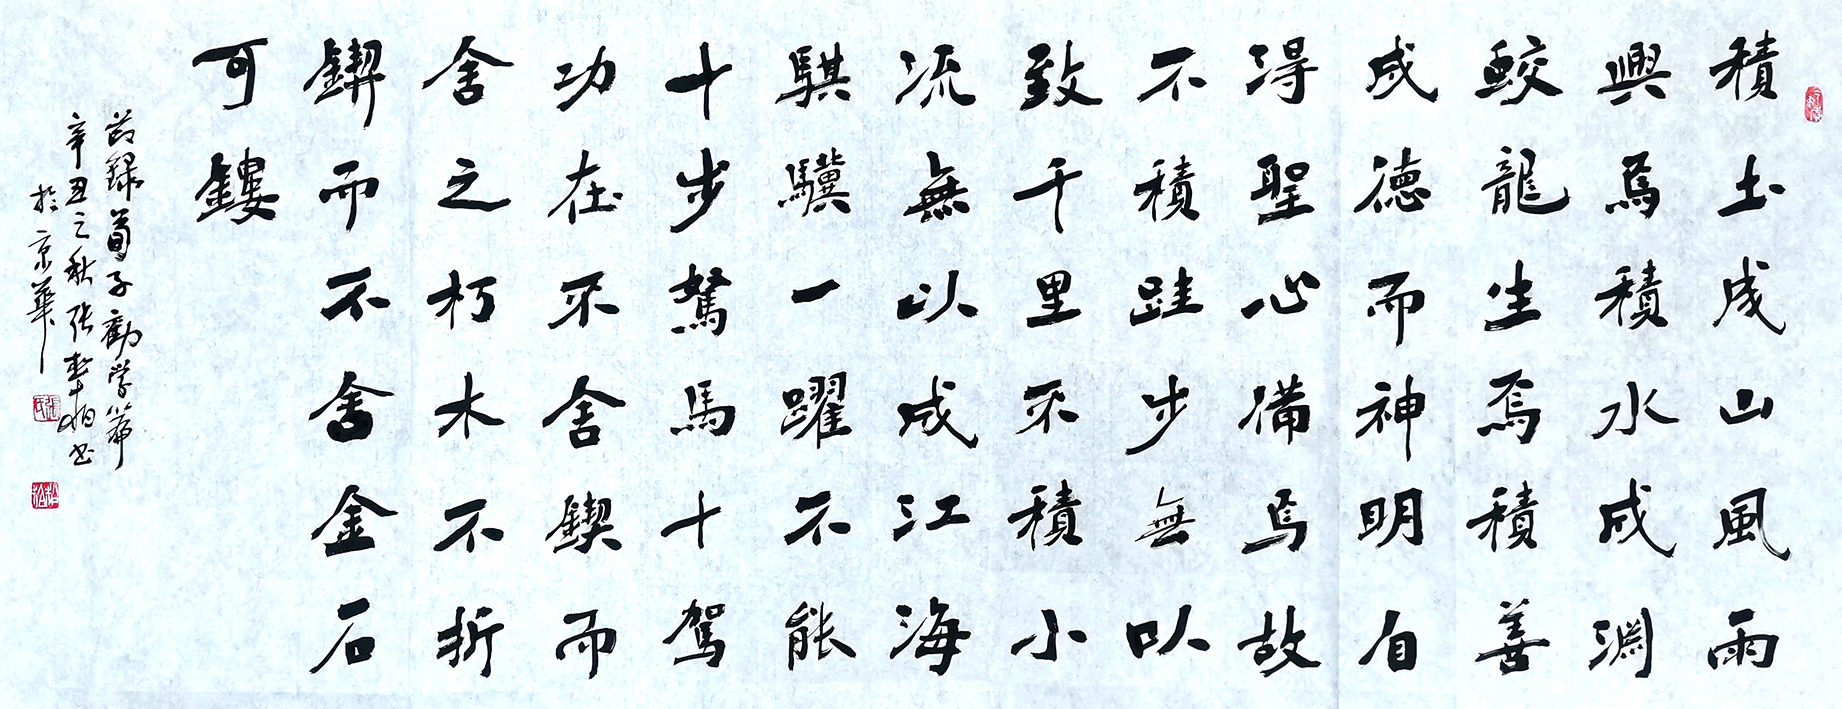 積土成山風雨
興焉積水成淵
鮫龍生焉積善
成德而神明自
得聖心備焉故
不積跬步無以
致千里不積小
流無以成江海
騏驥一躍不能
十步駑馬十駕
功在不舍鍥而
舍之朽木不折
鍥而不舍金石
可鏤
节録荀子勸学篇
辛丑之秋張柏书
於京華